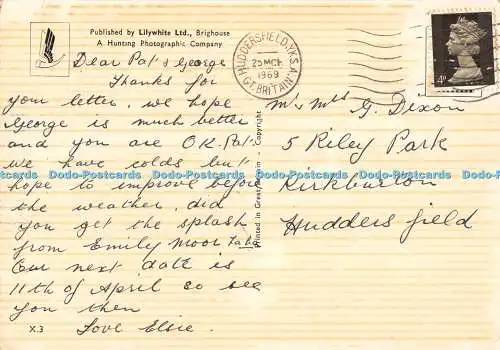 Published by Lilywhite Ltd., Brighouse
A Hunting Photographic Company
HUDDERSFIELD, YKS. A
25 MCH
1969
GT. BRITAIN
4D
Dear Pat & George
Thanks for
your letter, we hope
George is much better
and you are O.K. Pat.
we have colds but
hope to improve before
the weather, did
you get the splash
from Emily Moor
Our next date is
11th of April so see
you then
Love Elsie.
Mr & Mrs G. Dixon
5 Riley Park
Kirkburton
Hudders field
Printed in Great Britain - Copyright
X.3
Dodo-Postcards Dodo-Postcards Dodo-Postcards Dodo-Postcards